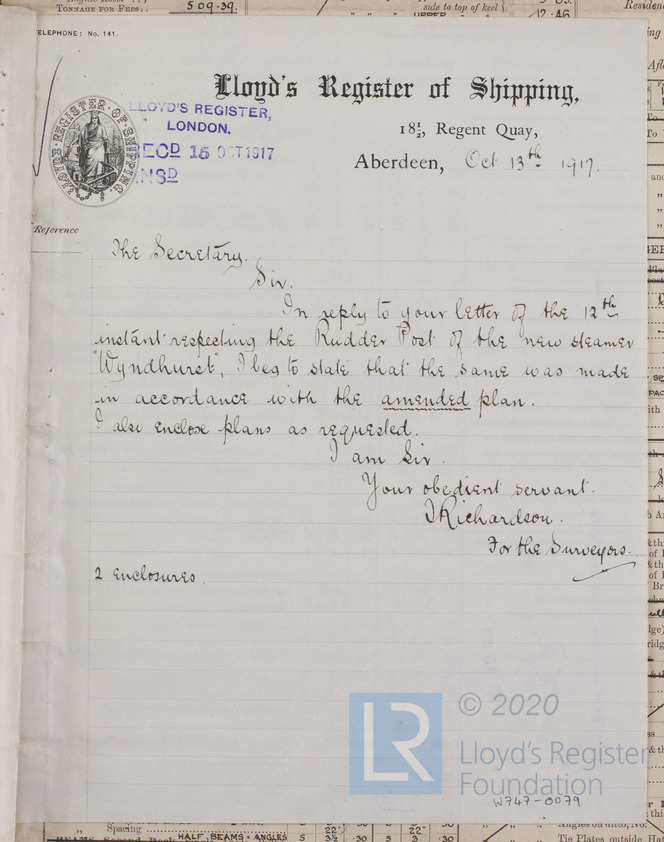 TONNAGE FOR FEES..
509.39.
side to top of keel
12.46
TELEPHONE: No. 141.
Lloyd's Register of Shipping,
18½, Regent Quay,
Aberdeen, Oct 13th 1917.
LLOYD'S REGISTER OF SHIPPING
LLOYD'S REGISTER,
LONDON.
RECD 15 OCT 1917
ANSD
Reference
The Secretary.
Sir.
In reply to your letter of the 12th
instant respecting the Rudder Post of the new steamer
"Wyndhurst", I beg to state that the same was made
in accordance with the amended plan.
I also enclose plans as requested.
I am Sir.
Your obedient servant.
J Richardson.
For the Surveyors.
2 enclosures.
LR
© 2020
Lloyd's Register
Foundation
W747-0079
„ Spacing
22"
22"
HALF BEAMS · ANGLES
5 3½ .30 5 3 .30
Tie Plates outside